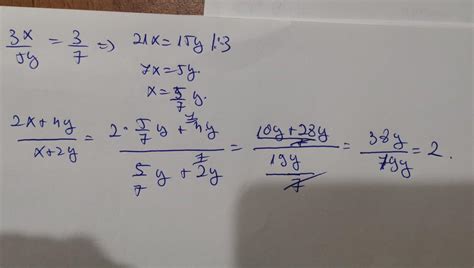 3x/5y = 3/7 => 21x = 15y |:3
7x = 5y.
x = 5/7 y.
(2x+4y)/(x+2y) = (2·5/7 y + 4y)/(5/7 y + 2y) = ((10y+28y)/7)/(19y/7) = 38y/19y = 2.